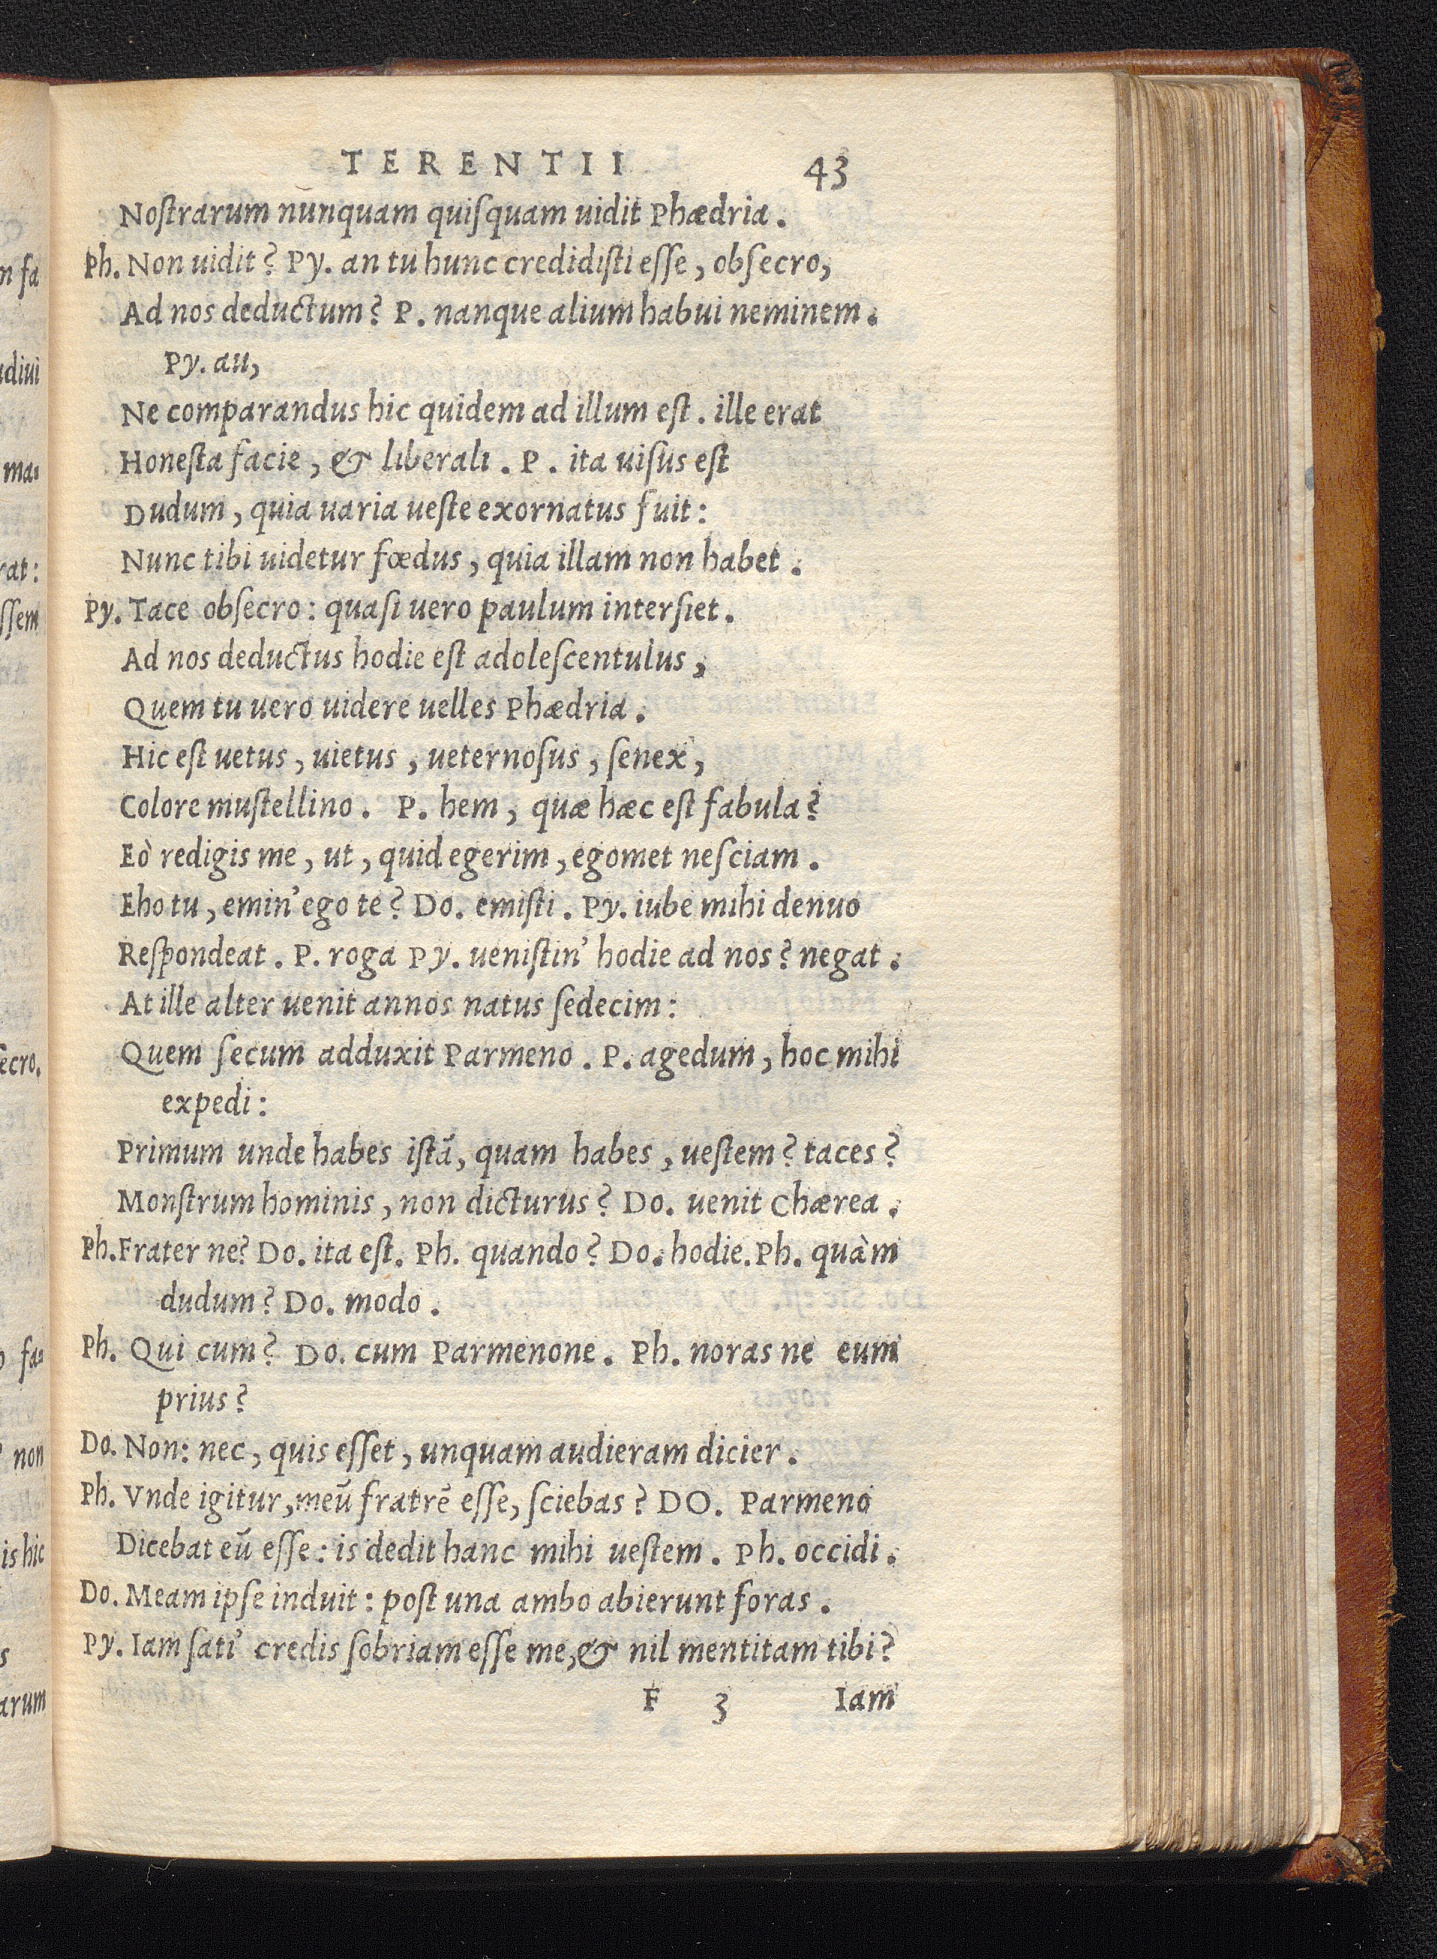 TERENTII 43
Noſtrarum nunquam quiſquam uidit Phædria.
Ph. Non uidit? Py. an tu hunc credidiſti eſſe, obſecro,
Ad nos deductum? P. nanque alium habui neminem.
Py. au,
Ne comparandus hic quidem ad illum eſt. ille erat
Honeſta facie, & liberali. P. ita uiſus eſt
Dudum, quia uaria ueſte exornatus fuit:
Nunc tibi uidetur fœdus, quia illam non habet.
Py. Tace obſecro: quaſi uero paulum interſiet.
Ad nos deductus hodie eſt adoleſcentulus,
Quem tu uero uidere uelles Phædria.
Hic eſt uetus, uietus, ueternoſus, ſenex,
Colore muſtellino. P. hem, quæ hæc eſt fabula?
Eò redigis me, ut, quid egerim, egomet neſciam.
Eho tu, emin' ego te? Do. emiſti. Py. iube mihi denuo
Reſpondeat. P. roga Py. ueniſtin' hodie ad nos? negat.
At ille alter uenit annos natus ſedecim:
Quem ſecum adduxit Parmeno. P. agedum, hoc mihi
expedi:
Primum unde habes iſtã, quam habes, ueſtem? taces?
Monſtrum hominis, non dicturus? Do. uenit Chærea.
Ph. Frater ne? Do. ita eſt. Ph. quando? Do. hodie. Ph. quàm
dudum? Do. modo.
Ph. Qui cum? Do. cum Parmenone. Ph. noras ne eum
prius?
Do. Non: nec, quis eſſet, unquam audieram dicier.
Ph. Vnde igitur, meũ fratrẽ eſſe, ſciebas? DO. Parmeno
Dicebat eũ eſſe: is dedit hanc mihi ueſtem. Ph. occidi.
Do. Meam ipſe induit: poſt una ambo abierunt foras.
Py. Iam ſati' credis ſobriam eſſe me, & nil mentitam tibi?
F 3 Iam